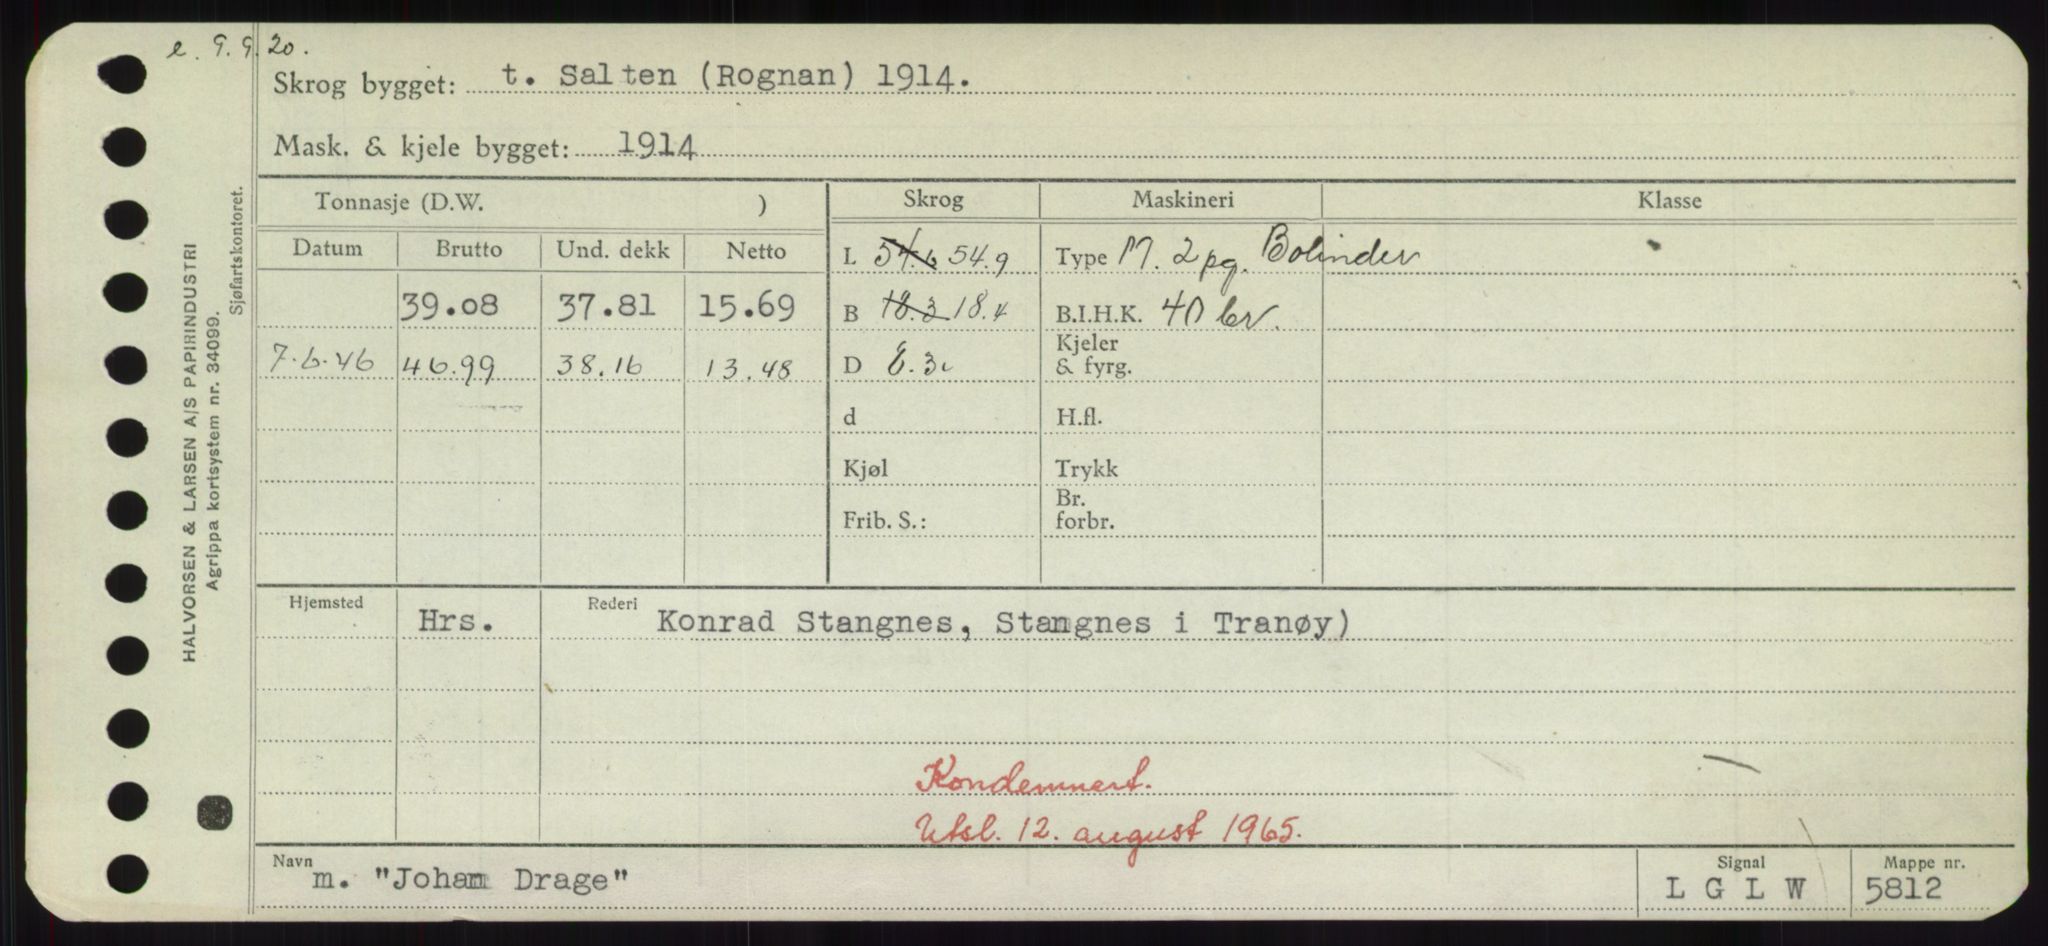 e. 9.9.20.
Skrog bygget: t. Salten (Rognan) 1914.
Mask. & kjele bygget: 1914
Tonnasje (D.W. ) Skrog Maskineri Klasse
Datum Brutto Und. dekk Netto
L 54.6 54.9 Type M. 2 pg. Bolinder
39.08 37.81 15.69 B 18.3 18.4 B.I.H.K. 40 br.
Kjeler
7.6.46 46.99 38.16 13.48 D 8.3 & fyrg.
d H.fl.
Kjøl Trykk
Br.
Frib. S.: forbr.
Hjemsted Rederi
Hrs. Konrad Stangnes, Stangnes i Tranøy)
Kondemnert.
Utsl. 12. august 1965.
Navn Signal Mappe nr.
m. "Johan Drage" L G L W 5812
HALVORSEN & LARSEN A/S PAPIRINDUSTRI
Agrippa kortsystem nr. 34099.
Sjøfartskontoret.